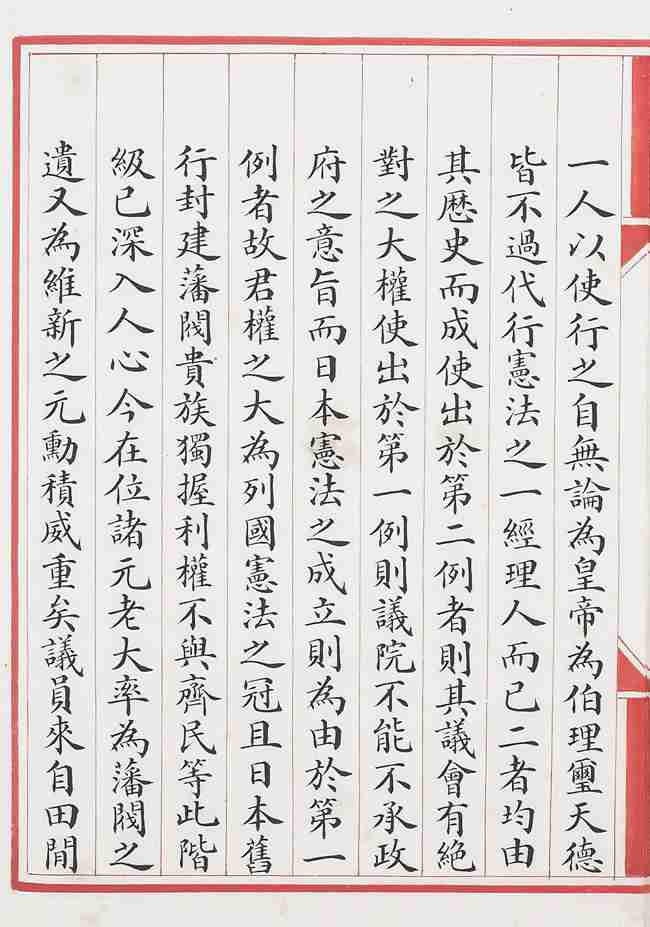 一人以使行之自無論為皇帝為伯理璽天德
皆不過代行憲法之一經理人而已二者均由
其歷史而成使出於第二例者則其議會有絕
對之大權使出於第一例則議院不能不承政
府之意旨而日本憲法之成立則為由於第一
例者故君權之大為列國憲法之冠且日本舊
行封建藩閥貴族獨握利權不與齊民等此階
級已深入人心今在位諸元老大率為藩閥之
遺又為維新之元勳積威重矣議員來自田間